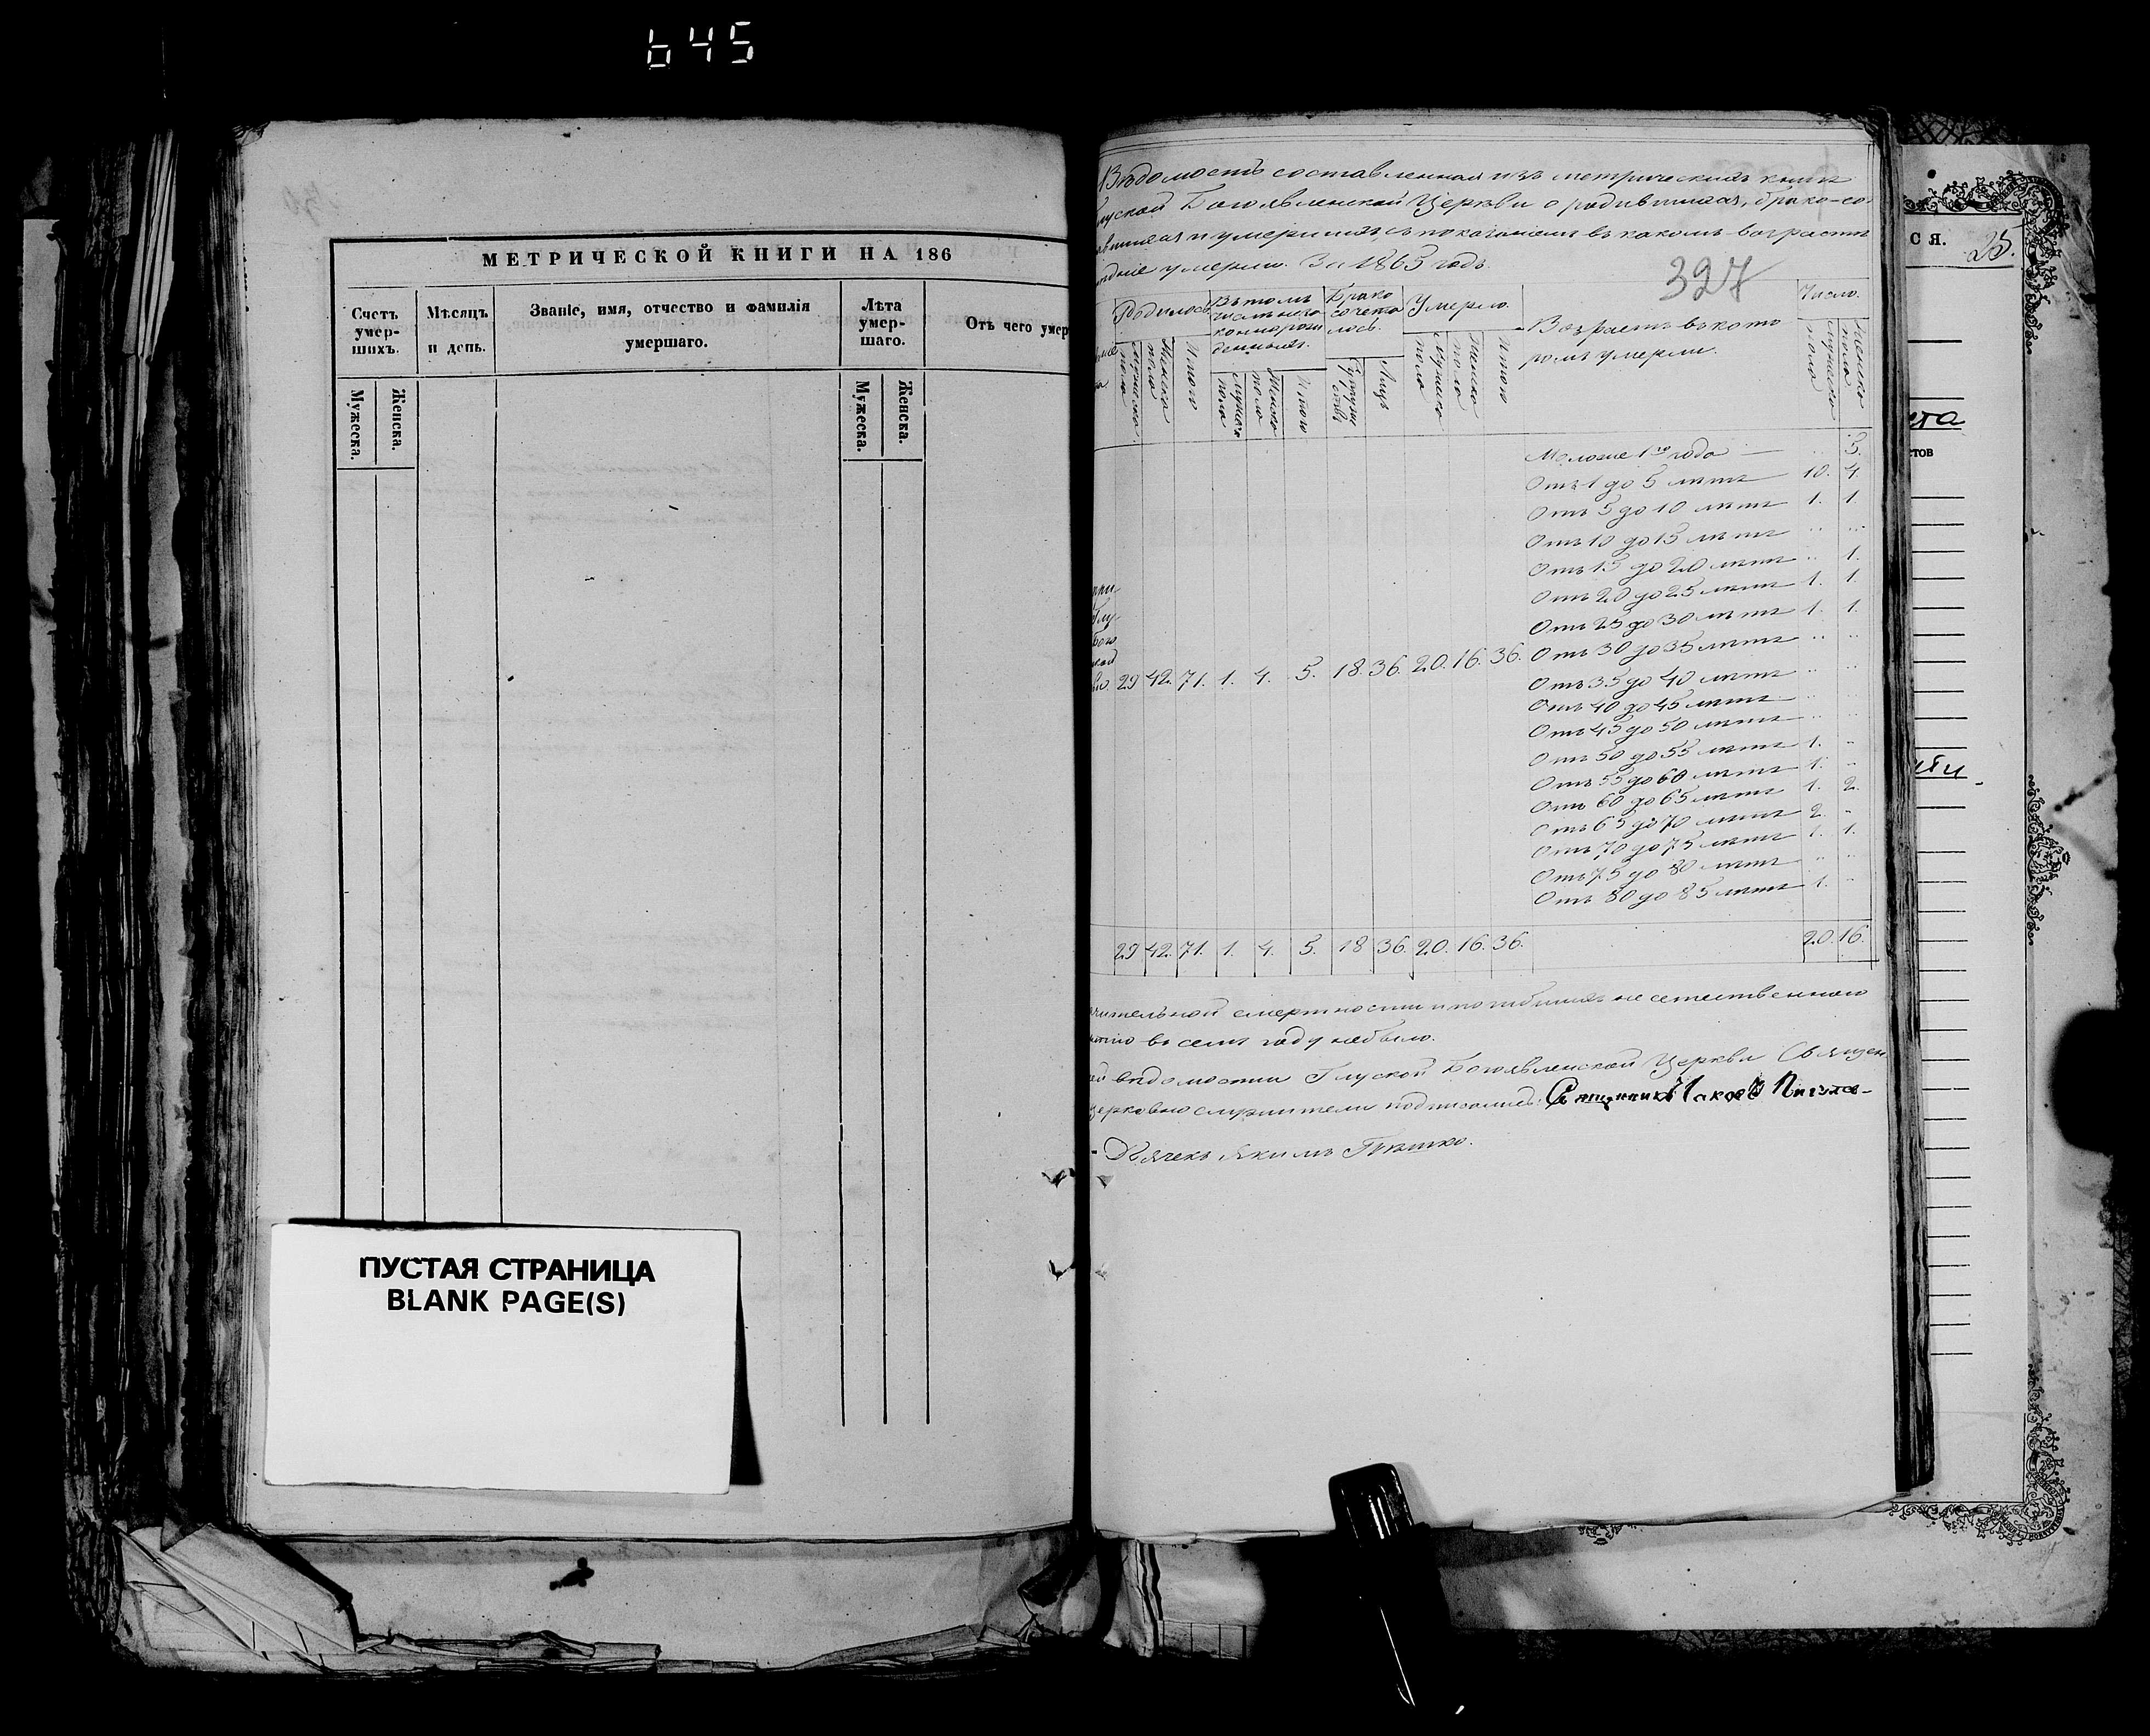 645
МЕТРИЧЕСКОЙ КНИГИ НА 186
Счетъ умер-шихъ.
Мѣсяцъ и день.
Званіе, имя, отчество и фамилія умершаго.
Лѣта умер-шаго.
Отъ чего умер
Мужеска.
Женска.
Мужеска.
Женска.
ПУСТАЯ СТРАНИЦА
BLANK PAGE(S)
Вѣдомость составленная изъ метрическихъ книгъ
луской Богоявленской Церкви о родившихся, брако-со-
авшихся и умершихъ, съ показаніемъ въ какомъ возрастѣ
умерли. За 1865 годъ.
327
Родилось
Въ томъ числѣ
Брако сочета лось.
Умерло.
Возрастъ въ кото
ромъ умерли.
Число.
Мужеска пола
Женска пола
Итого
Мужска пола
Женска пола
Итого
Супруже ствъ
Лицъ
Мужеска пола
Женска пола
Итого
Мужеска пола
Женска пола
Моложе 1го года — .. 3.
Отъ 1 до 5 лѣтъ 10. 4.
Отъ 5 до 10 лѣтъ 1. 1.
Отъ 10 до 15 лѣтъ .. ..
Отъ 15 до 20 лѣтъ .. 1.
Отъ 20 до 25 лѣтъ 1. 1.
Отъ 25 до 30 лѣтъ 1. 1.
Отъ 30 до 35 лѣтъ .. ..
29 42. 71. 1. 4. 5. 18. 36. 20. 16. 36.
Отъ 35 до 40 лѣтъ .. ..
Отъ 40 до 45 лѣтъ .. ..
Отъ 45 до 50 лѣтъ .. ..
Отъ 50 до 55 лѣтъ 1. ..
Отъ 55 до 60 лѣтъ 1. ..
Отъ 60 до 65 лѣтъ 1. 2.
Отъ 65 до 70 лѣтъ 2. ..
Отъ 70 до 75 лѣтъ 1. 1.
Отъ 75 до 80 лѣтъ .. ..
Отъ 80 до 85 лѣтъ 1. ..
29 42. 71. 1. 4. 5. 18 36. 20. 16. 36. 20. 16.
чительной смертности и погибшихъ не естественною
въ семъ году небыло.
ей вѣдомости Глуской Богоявленской Церкви Священ
церковно служители подписались: Священникъ Іаковъ
Дьячекъ Якимъ
СЯ.
25.
ста
стов